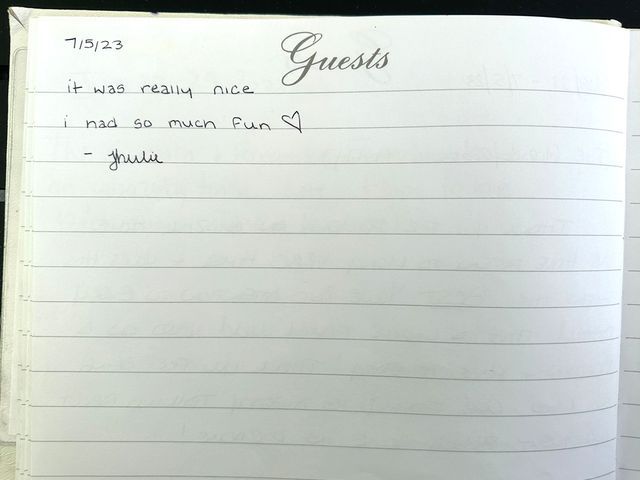 7/5/23
Guests
it was really nice
i had so much fun ♡
- Jhulie